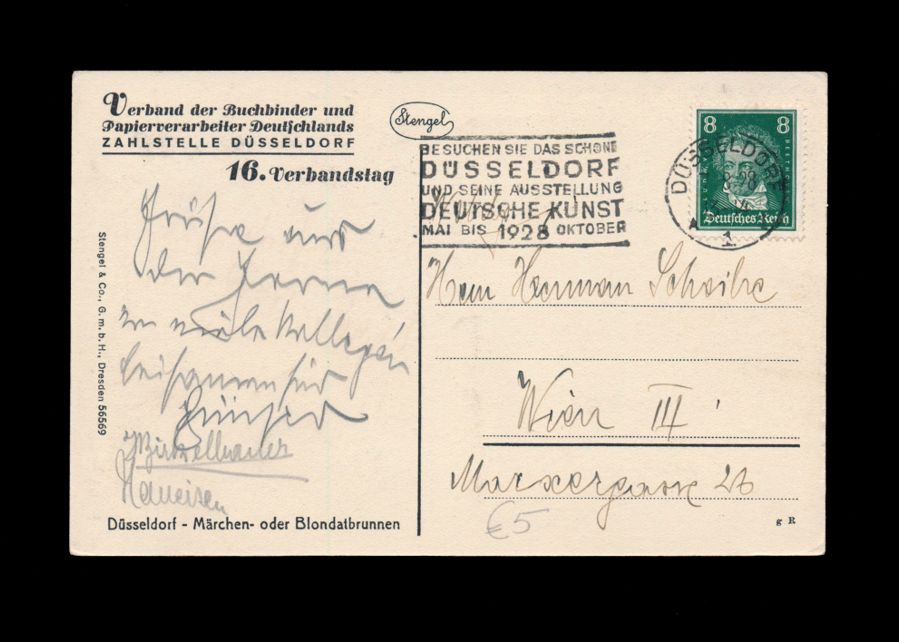 Verband der Buchbinder und
Papierverarbeiter Deutschlands
ZAHLSTELLE DÜSSELDORF
16. Verbandstag
Stengel
BESUCHEN SIE DAS SCHÖNE
DÜSSELDORF
UND SEINE AUSSTELLUNG
DEUTSCHE KUNST
MAI BIS 1928 OKTOBER
8 8
DÜSSELDORF
28
1
Deutsches Reich
Grüße aus
der Ferne
wo viele Kollegen
beisammen sind
Herrn Herman
Wien III
Marxergasse 26
€5
Stengel & Co., G. m. b. H., Dresden 56569
Düsseldorf - Märchen- oder Blondatbrunnen
g R